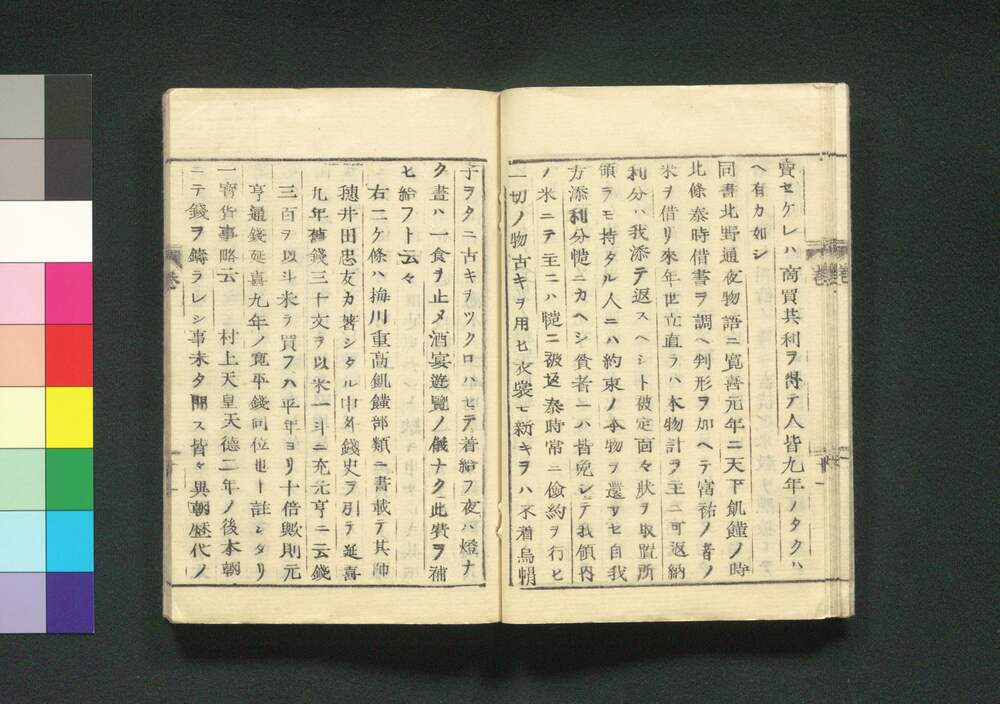 賣セケレハ商買其利ヲ得テ人皆九年ノタクハ
ヘ有カ如シ
同書北野通夜物語ニ寛喜元年ニ天下飢饉ノ時
北條泰時借書ヲ調ヘ判形ヲ加ヘテ富祐ノ者ノ
米ヲ借リ來年世立直ラハ本物計ヲ主ニ可返納
利分ハ我添テ返スヘシト被定面々狀ヲ取置所
領ヲモ持タル人ニハ約束ノ本物ヲ還サセ自我
方添利分慥ニカヘシ貧者ニハ皆免シテ我領内
ノ米ニテ主ニハ慥ニ被返泰時常ニ儉約ヲ行ヒ
一切ノ物古キヲ用ヒ衣裳モ新キヲハ不着烏帽
子ヲタニ古キヲツクロハセテ着給フ夜ハ燈ナ
ク晝ハ一食ヲ止メ酒宴遊覽ノ儀ナク此費ヲ補
ヒ給フト云々
右二ケ條ハ梅川重高飢饉部類ニ書載テ其師
穂井田忠友カ著シタル中外錢史ヲ引テ延喜
九年舊錢三十文ヲ以米一斗ニ充元亨ニ云錢
三百ヲ以斗米ヲ買フハ平年ヨリ十倍歟則元
亨通錢延喜九年ノ寛平錢同位也ト註シタリ
一寳貨事略云 村上天皇天德二年ノ後本朝
ニテ錢ヲ鑄ラレシ事未タ聞ス皆々異朝歴代ノ